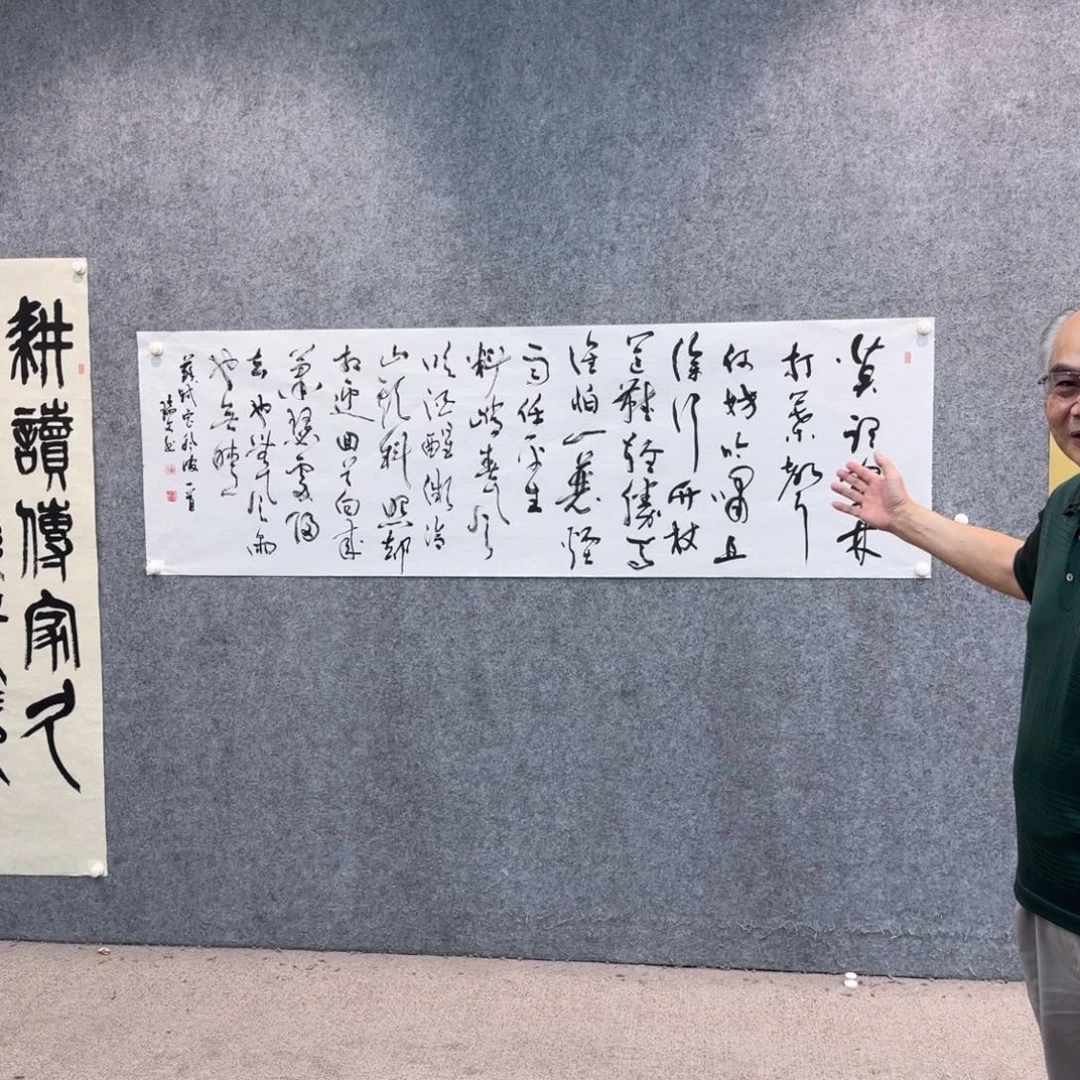 莫聽穿林
打葉聲
何妨吟嘯且
徐行竹杖
芒鞋輕勝馬
誰怕一蓑煙
雨任平生
料峭春風
吹酒醒微冷
山頭斜照却
相迎回首向來
蕭瑟處歸
去也無風雨
也無晴
蘇軾定風波一首
耕讀傳家久